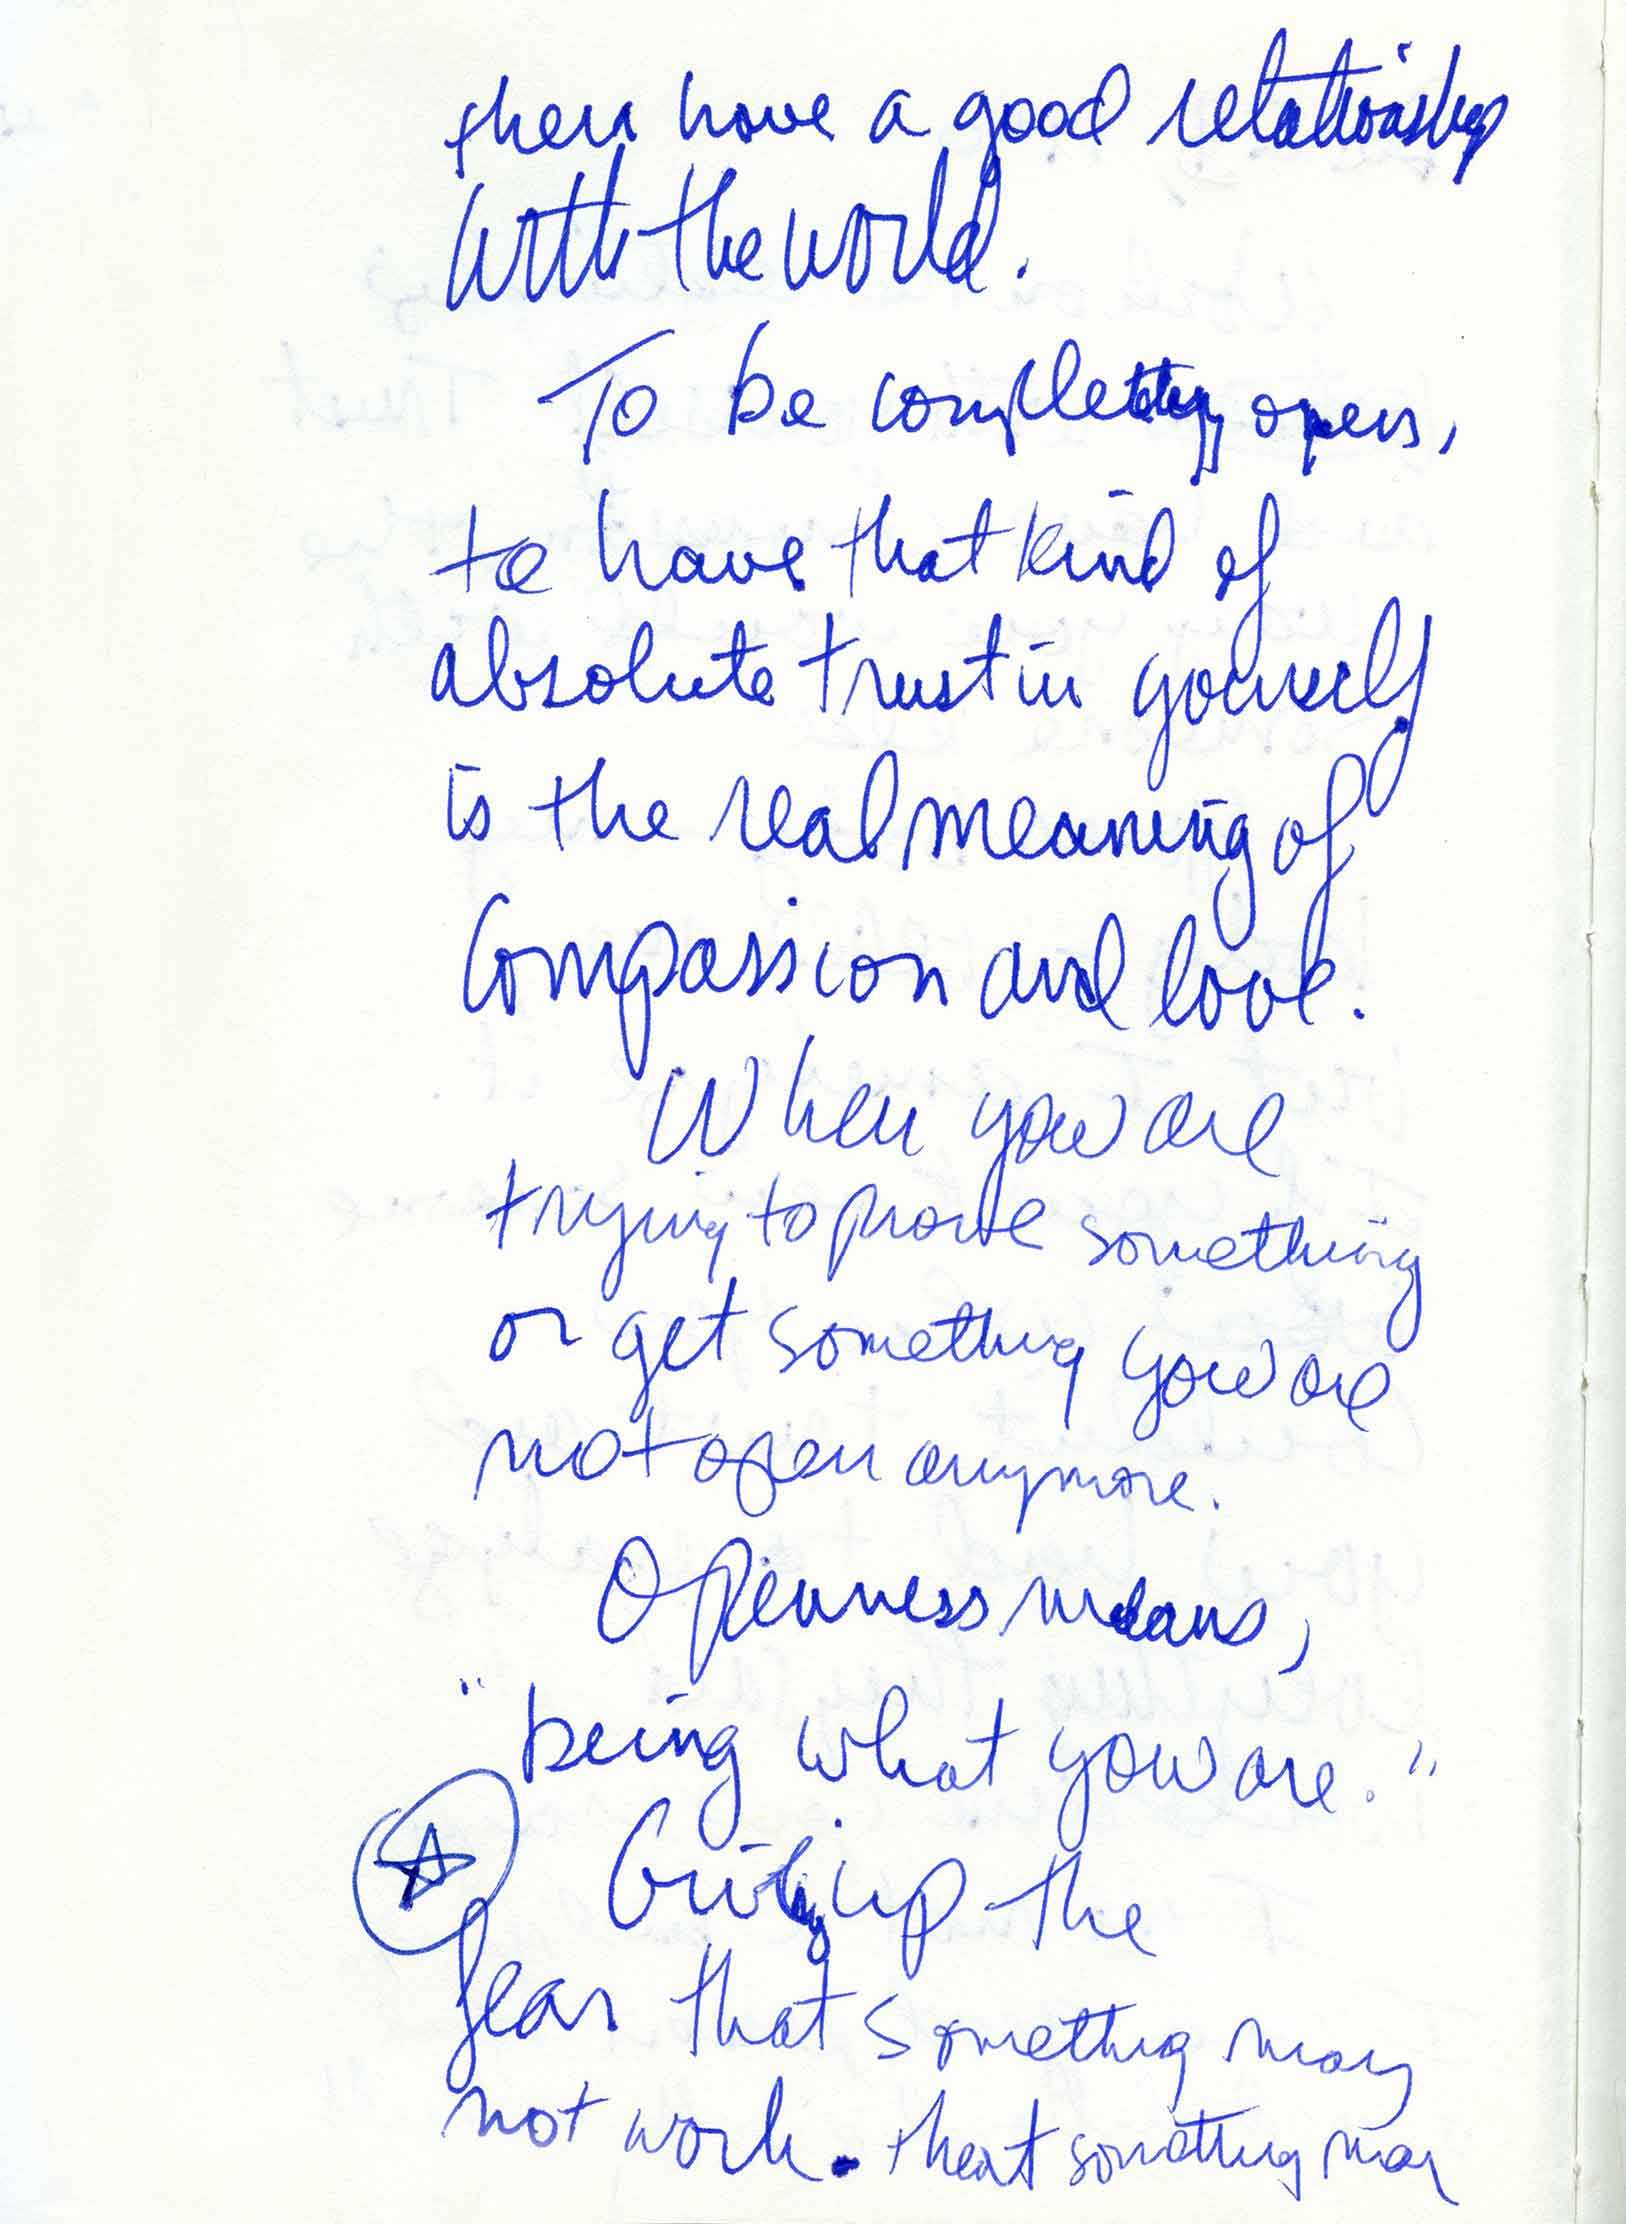 then have a good relationship
with the world.
To be completely open,
to have that kind of
absolute trust in yourself
is the real meaning of
Compassion and love.
When you are
trying to prove something
or get something you are
not open anymore.
Openness means,
"being what you are."
Giving up the
fear that something may
not work. that something may